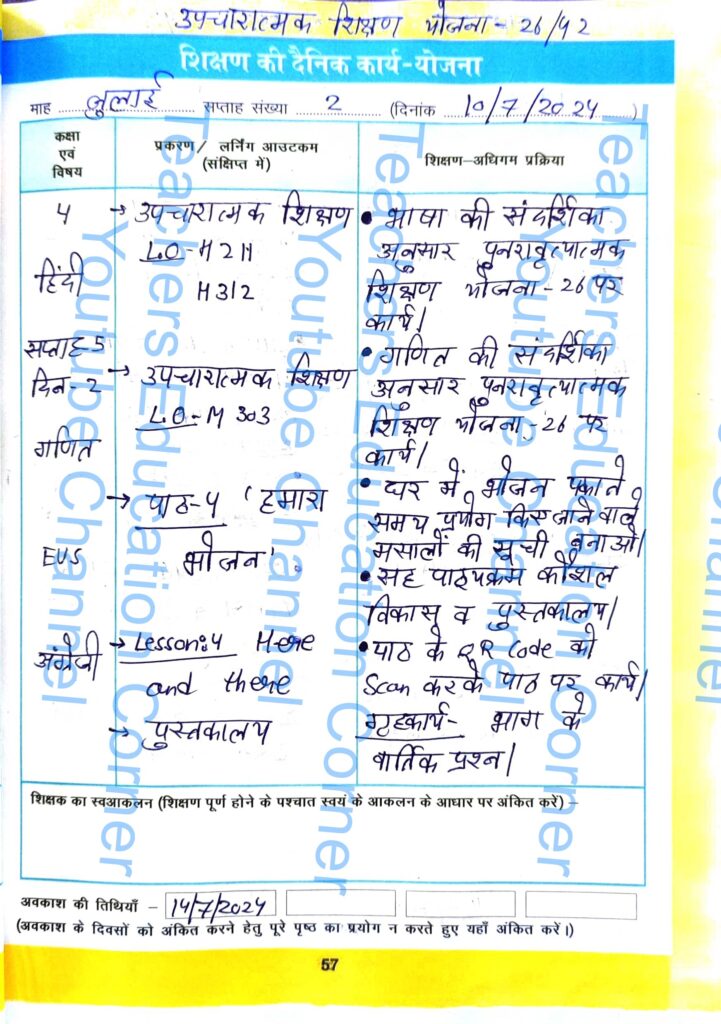 उपचारात्मक शिक्षण योजना - 26/42
शिक्षण की दैनिक कार्य-योजना
माह जुलाई सप्ताह संख्या 2 (दिनांक 10/7/2024)
कक्षा
एवं
विषय
प्रकरण/ लर्निंग आउटकम
(संक्षिप्त में)
शिक्षण-अधिगम प्रक्रिया
4
हिंदी
सप्ताह-5
दिन-2
गणित
EVS
अंग्रेजी
→ उपचारात्मक शिक्षण
L.O-H211
H312
→ उपचारात्मक शिक्षण
L.O-M 303
→ पाठ-4 'हमारा
भोजन'
→ Lesson:4 Here
and there
→ पुस्तकालय
• भाषा की संदर्शिका
अनुसार पुनरावृत्यात्मक
शिक्षण योजना-26 पर
कार्य।
• गणित की संदर्शिका
अनुसार पुनरावृत्यात्मक
शिक्षण योजना-26 पर
कार्य।
• घर में भोजन पकाते
समय प्रयोग किए जाने वाले
मसालों की सूची बनाओ।
• सह पाठ्यक्रम कौशल
विकास व पुस्तकालय।
• पाठ के QR Code को
Scan करके पाठ पर कार्य।
गृहकार्य- भाग के
वार्तिक प्रश्न।
शिक्षक का स्वआकलन (शिक्षण पूर्ण होने के पश्चात स्वयं के आकलन के आधार पर अंकित करें) –
अवकाश की तिथियाँ – 14/7/2024
(अवकाश के दिवसों को अंकित करने हेतु पूरे पृष्ठ का प्रयोग न करते हुए यहाँ अंकित करें।)
57
Teachers Education Corner
Youtube Channel
Teachers Education Corner
Youtube Channel
Teachers Education Corner
Youtube Channel